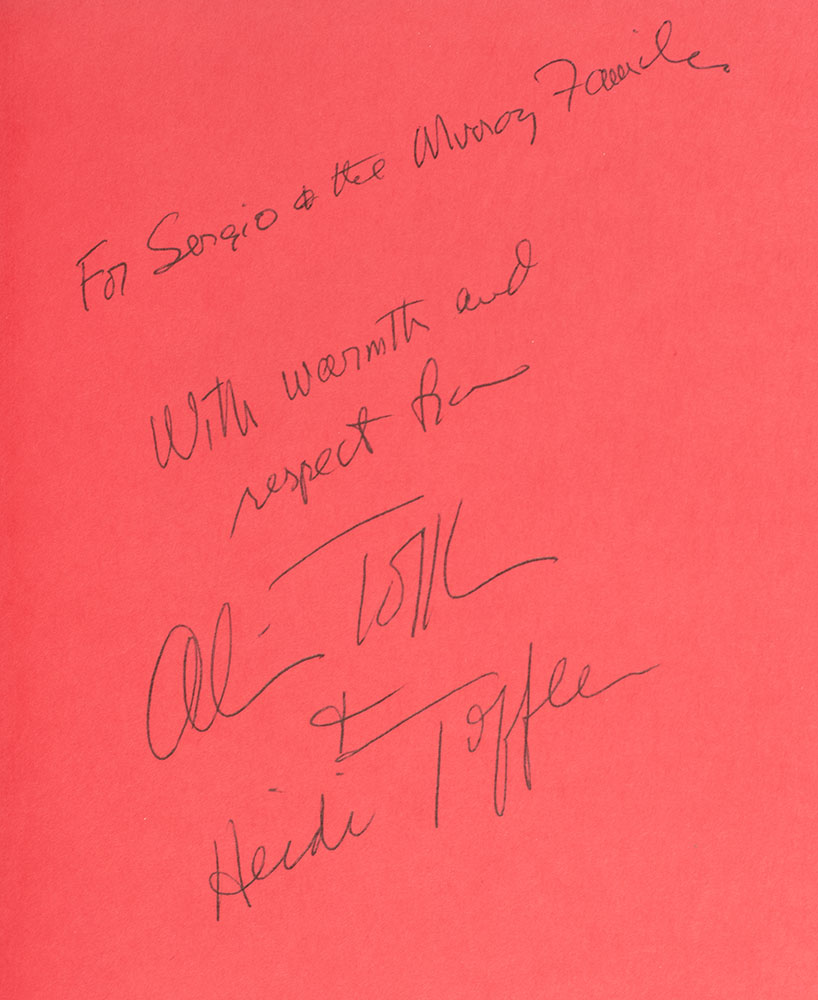 For Sergio & the Murray Family
With warmth and
respect from
Alvin Toffler
&
Heidi Toffler